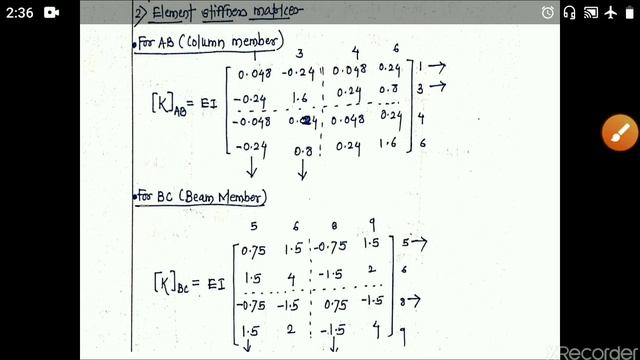 2:36
2) Element stiffness matrices
• For AB (Column member)
1 3 4 6
0.048 -0.24 0.048 0.24 1 →
-0.24 1.6 0.24 0.8 3 →
[K]AB = EI
-0.048 0.24 0.048 0.24 4
-0.24 0.8 0.24 1.6 6
• For BC (Beam Member)
5 6 8 9
0.75 1.5 -0.75 1.5 5 →
1.5 4 -1.5 2 6
[K]BC = EI
-0.75 -1.5 0.75 -1.5 8 →
1.5 2 -1.5 4 9
XRecorder